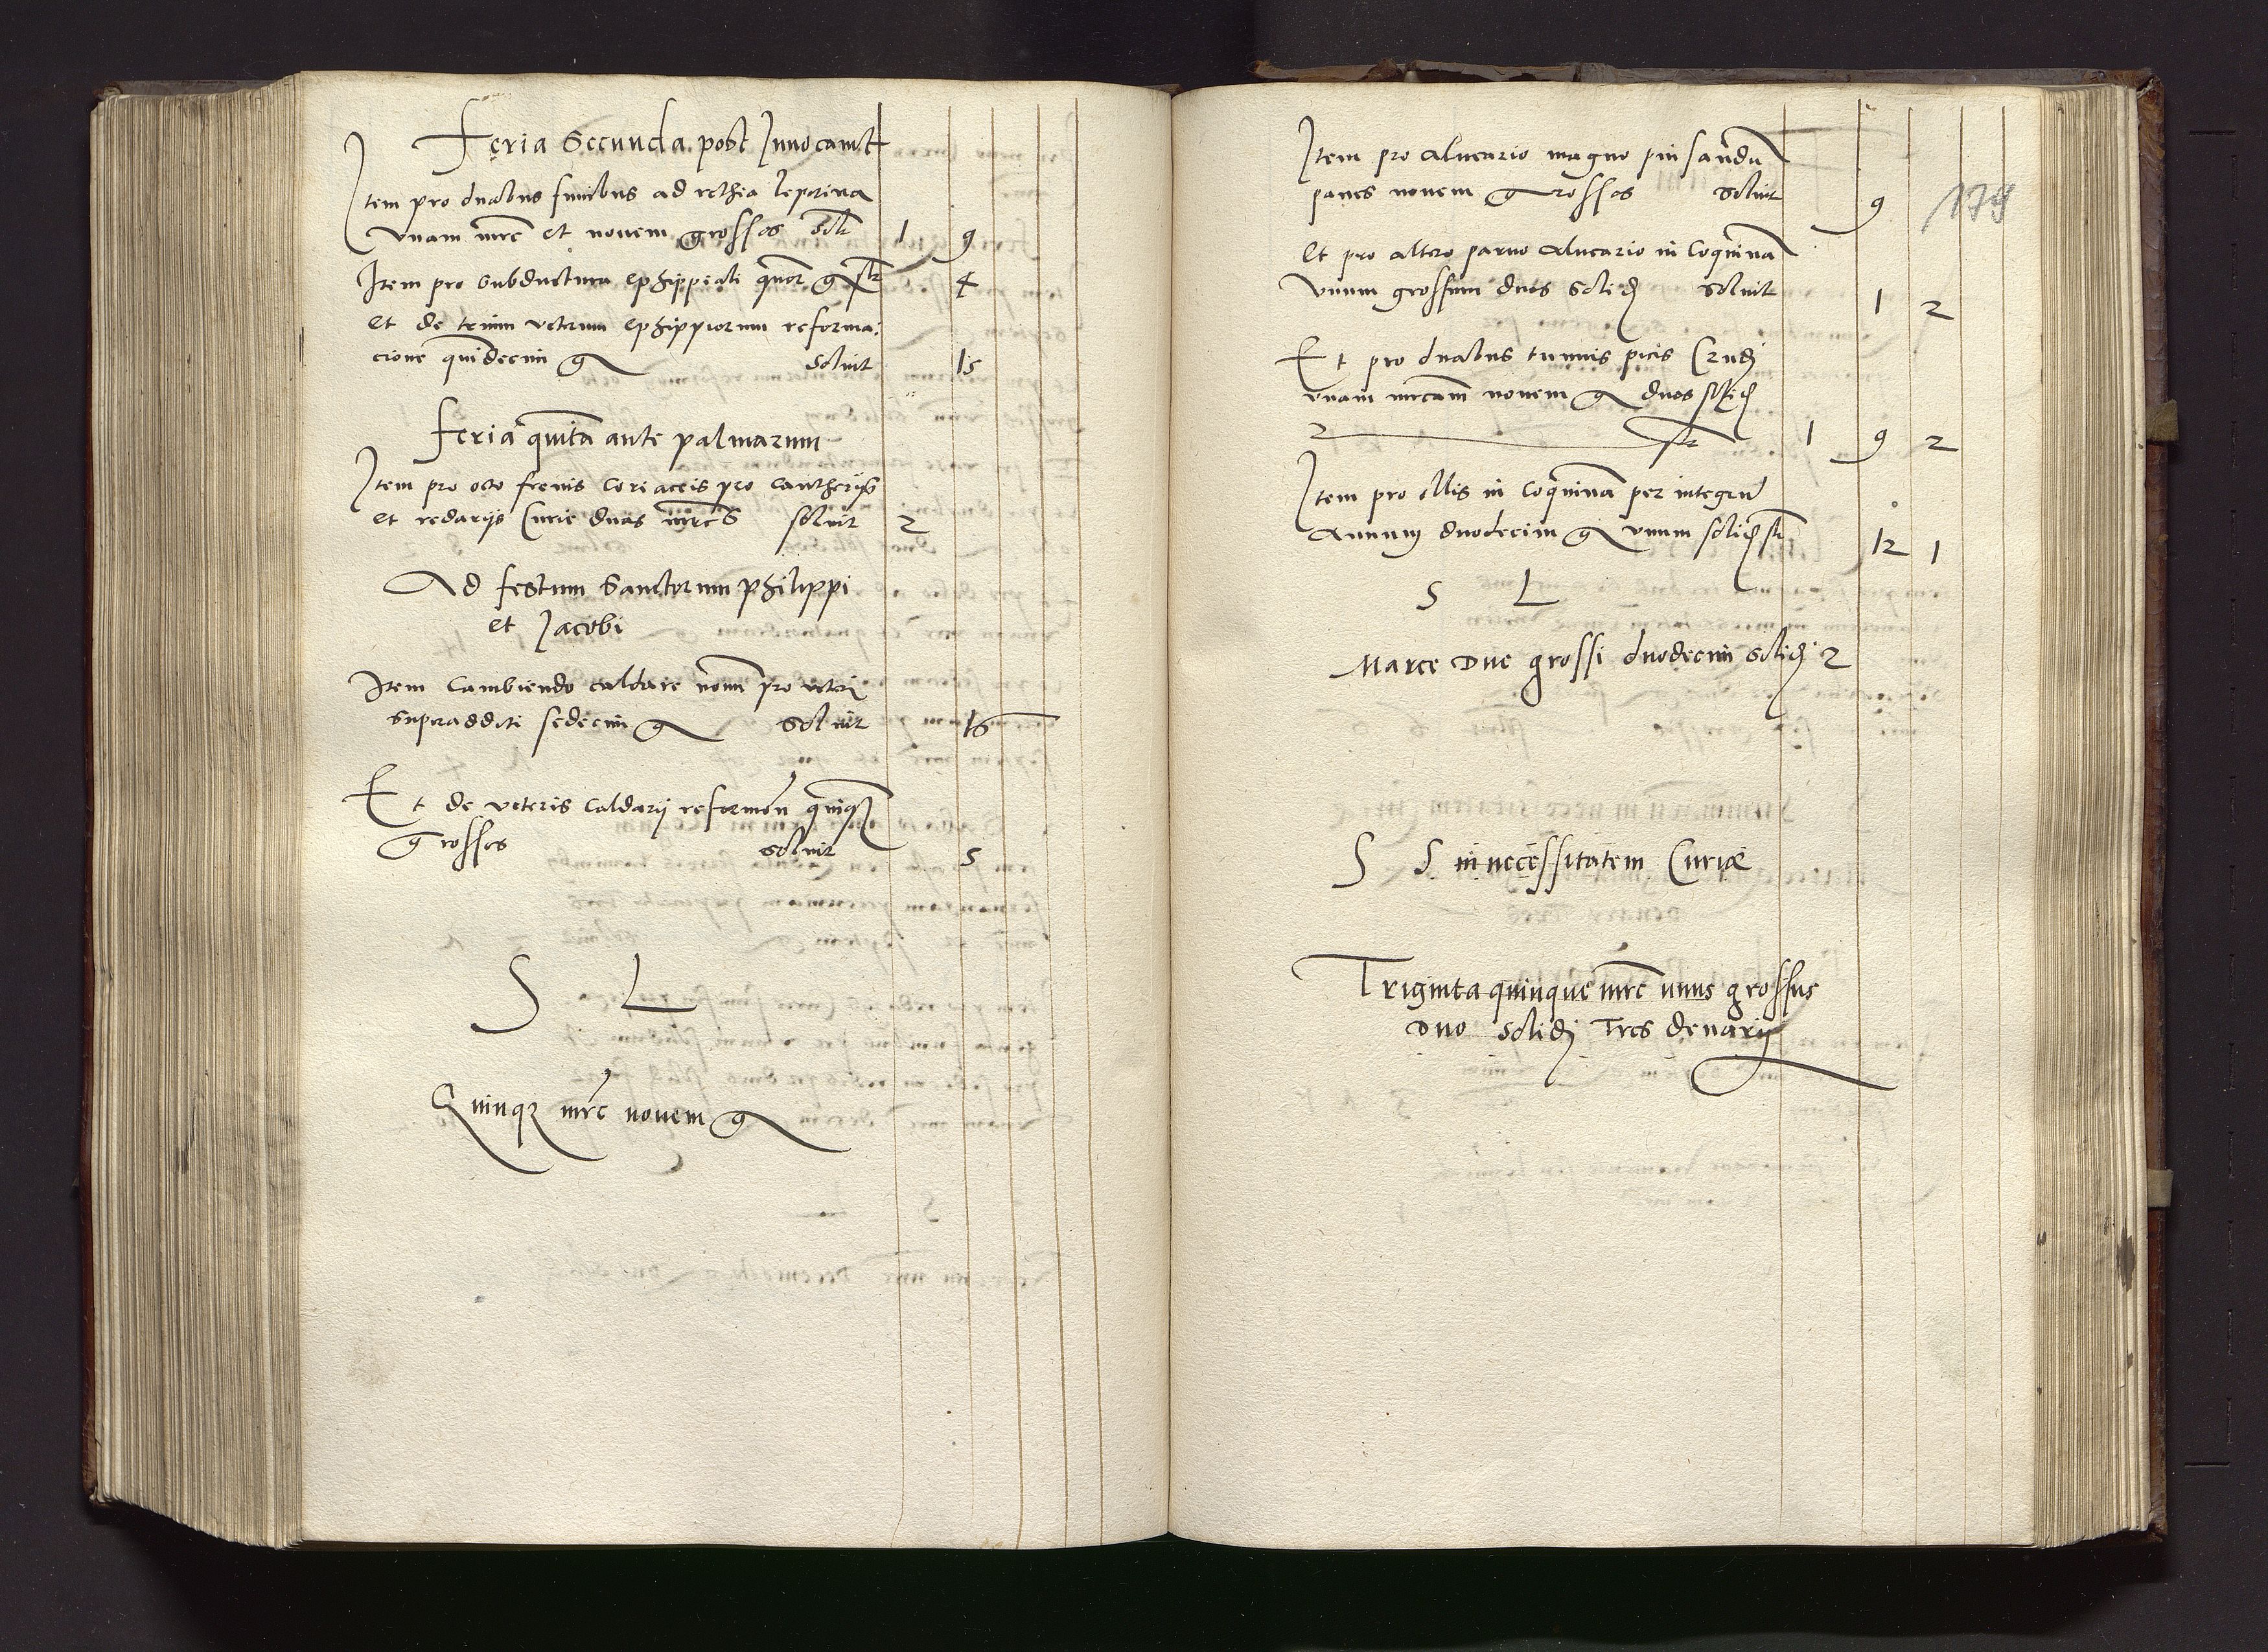 Feria Secunda post Inuocauit
Item pro duabus funibus ad rethea leporina
vnam mrc et nouem grossos solt 1 9
Item pro subductura ephippioli quor g slt 4
et de trium veterum ephippiorum reforma:
cione quindecim g soluit 15
Feria quinta ante palmarum
Item pro octo frenis coriaceis pro cantherijs
et redarijs Curie duas mrcs soluit 2
Ad festum Sanctorum philippi
et Jacobi
Item Cambiendo caldare nouum pro veteri
superadditi sedecim g soluit 16
Et de veteris Caldarij reformen quinq
grossos soluit 5
S L
Quinq mrc nouem g
Item pro alueario magno pinsandum
panes nouem grossos soluit 9
179
et pro altero paruo alueario in Coquinam
vnum grossum duos solid soluit 1 2
Et pro duabus tunnis picis Crudi
vnam mrcam nouem g duos solid
2 slt 1 9 2
Item pro ollis in Coquinam per integrum
Annum duodecim g vnum solid slt 12 1
S L
Marce Due grossi duodecim solidi 2
S S in necessitatem Curiæ
Triginta quinque mrc vnus grossus
Duo solidi Tres denarij